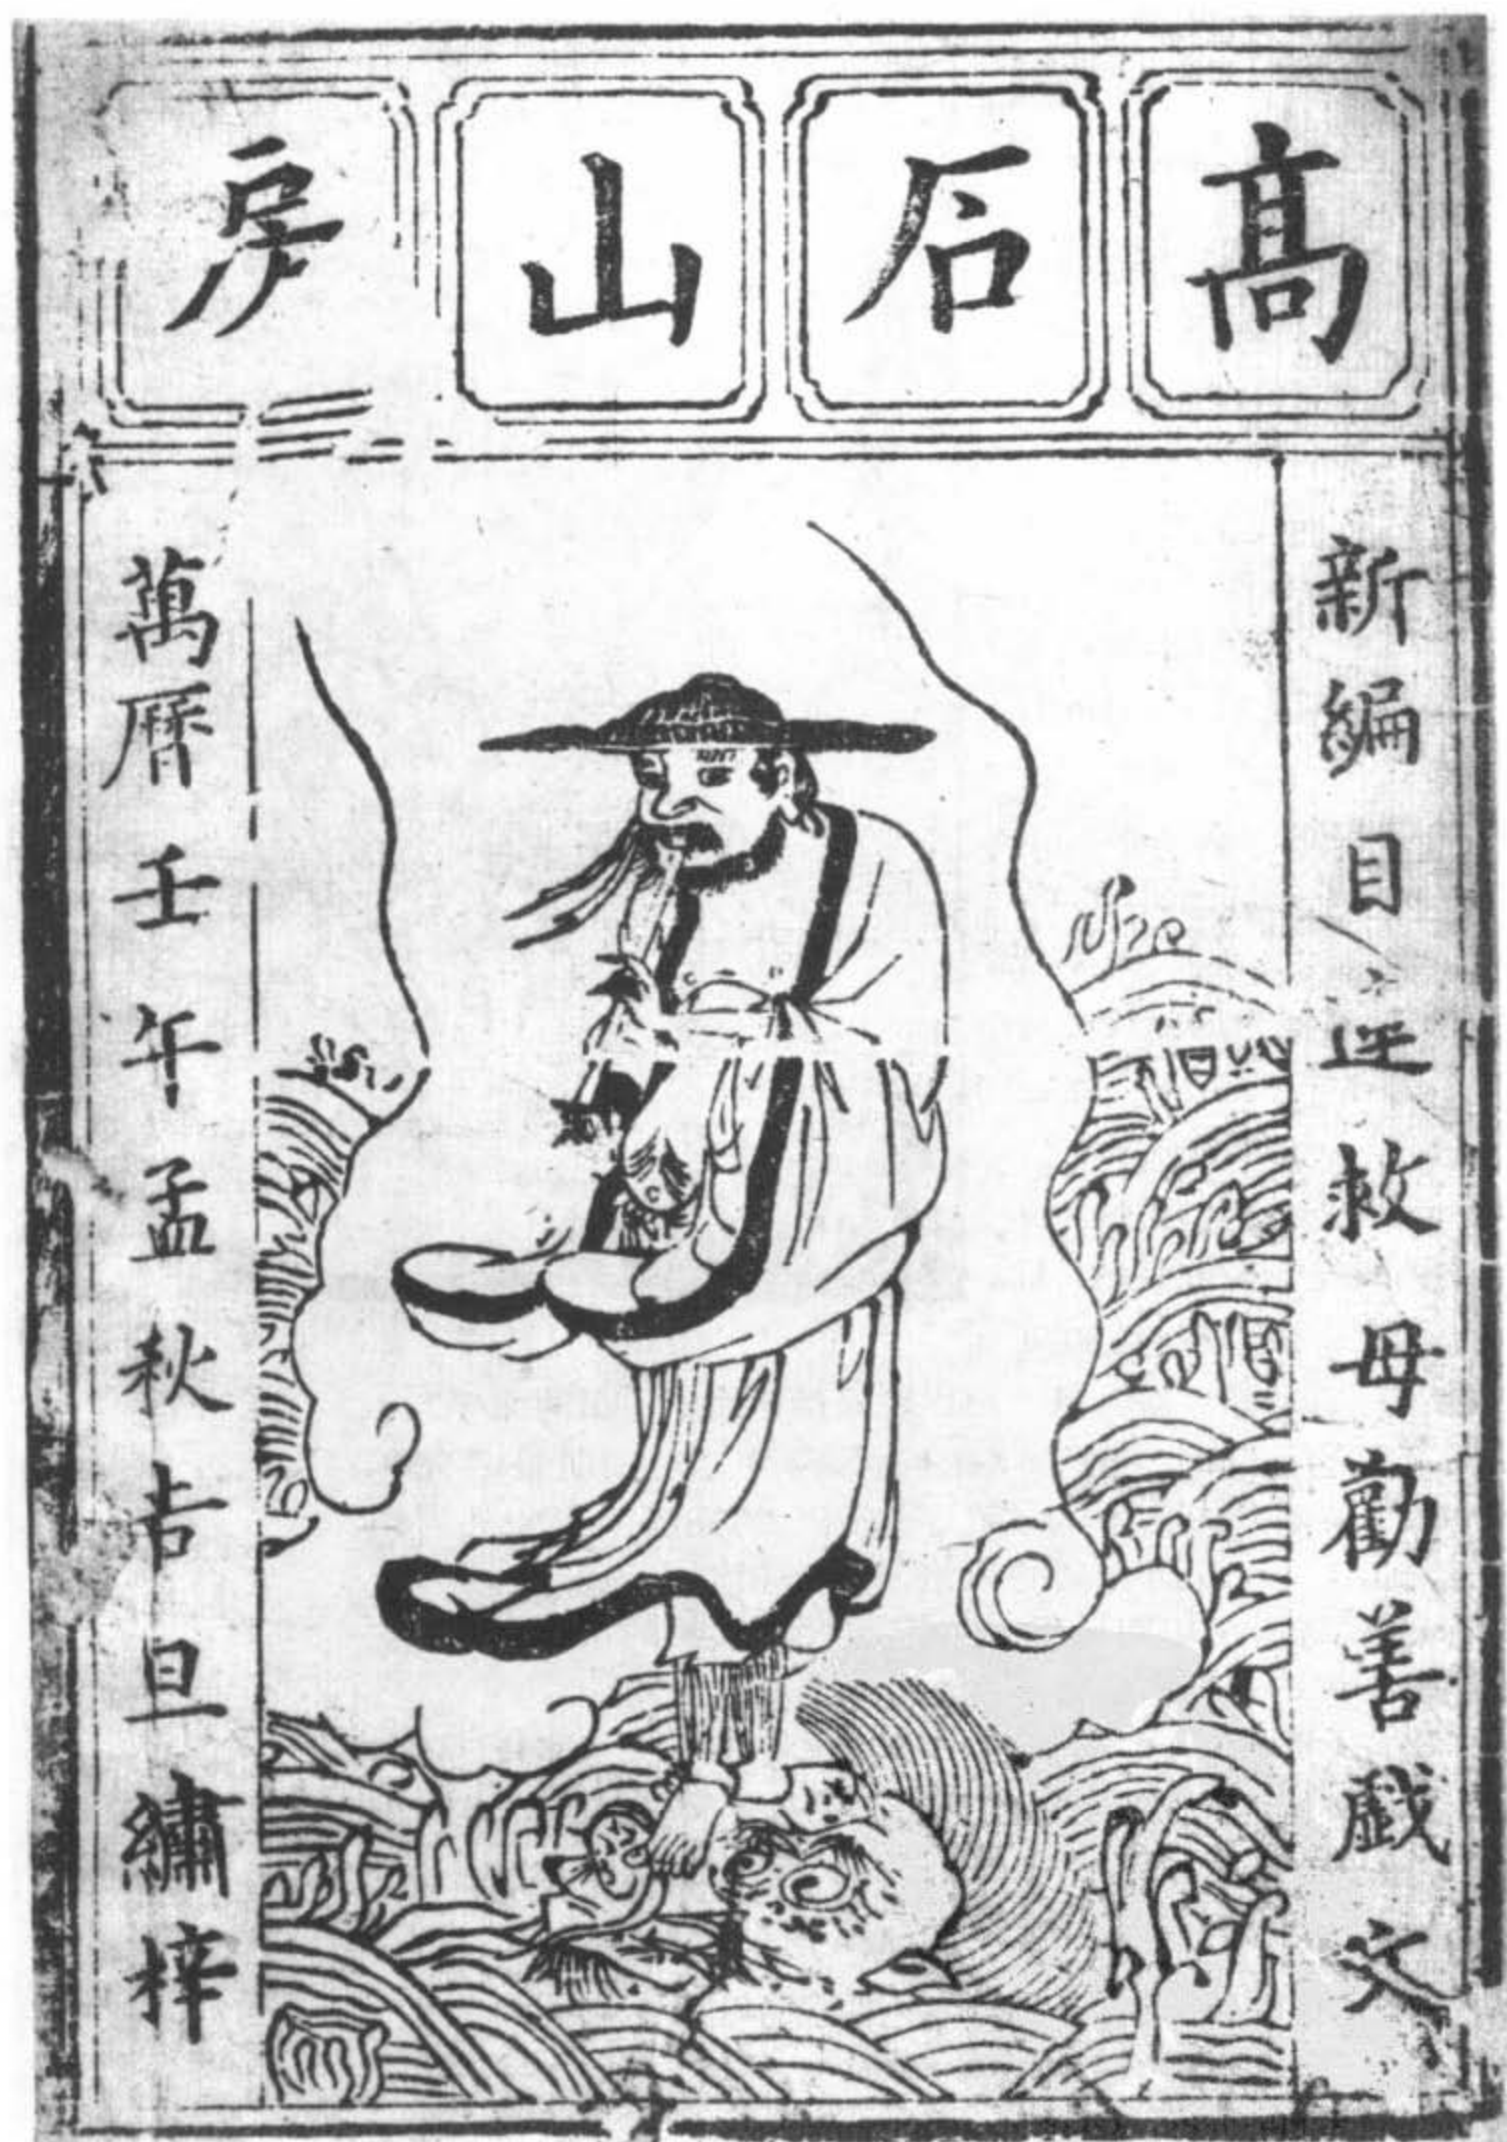 高石山房
新編目連救母勸善戲文
萬曆壬午孟秋吉旦繡梓